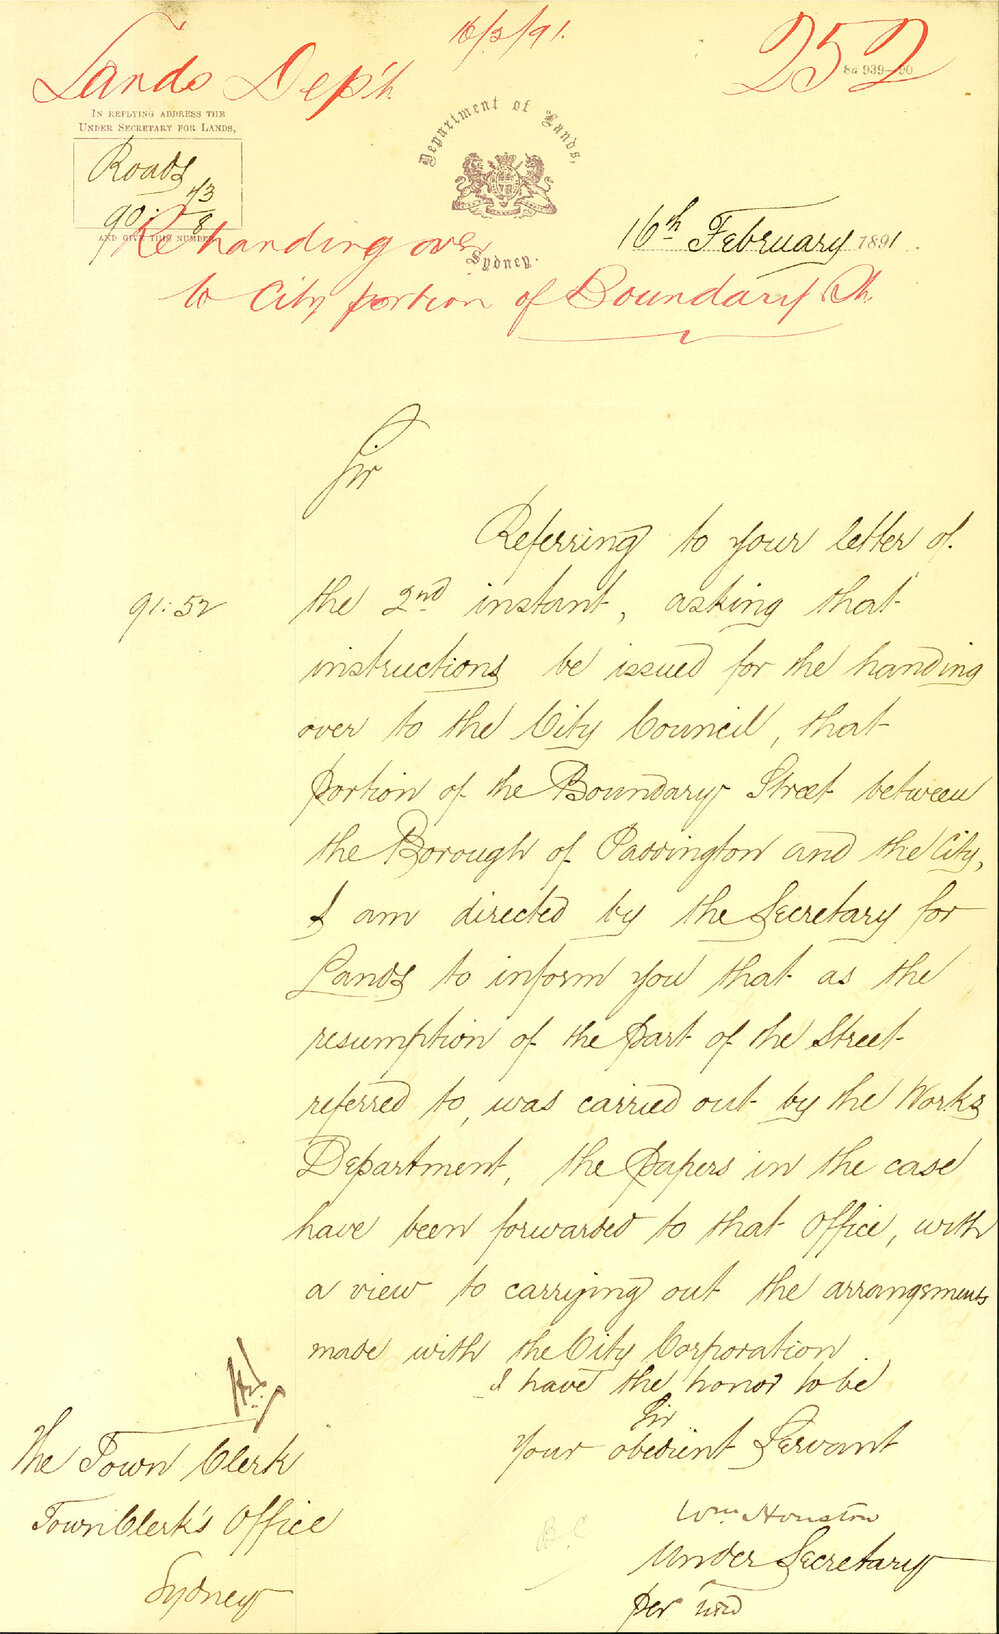 16/2/91.
252
8a 939—90
Lands Dep't
IN REPLYING ADDRESS THE
UNDER SECRETARY FOR LANDS,
Roads
90:
AND GIVE THIS NUMBER
Department of Lands,
Sydney.
16th February 1891.
Re handing over
to City portion of Boundary St.
Sir
Referring to your letter of
91:52
the 2nd instant, asking that
instructions be issued for the handing
over to the City Council, that
portion of the Boundary Street between
the Borough of Paddington and the City,
I am directed by the Secretary for
Lands to inform you that as the
resumption of the part of the Street
referred to, was carried out by the Works
Department, the papers in the case
have been forwarded to that Office, with
a view to carrying out the arrangements
made with the City Corporation
I have the honor to be
Sir
Your obedient Servant
Wm Houston
Under Secretary
per
The Town Clerk
Town Clerk's Office
Sydney